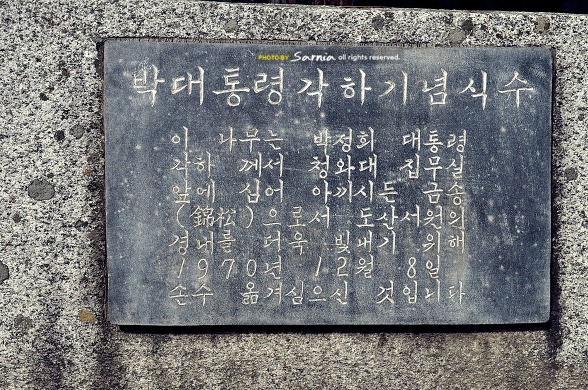 PHOTO BY Sarnia all rights reserved.
박대통령각하기념식수
이 나무는 박정희 대통령
각하 께서 청와대 집무실
앞에 심어 아끼시든 금송
(錦松)으로서 도산서원의
경내를 더욱 빛내기 위해
1970년 12월 8일
손수 옮겨심으신 것입니다